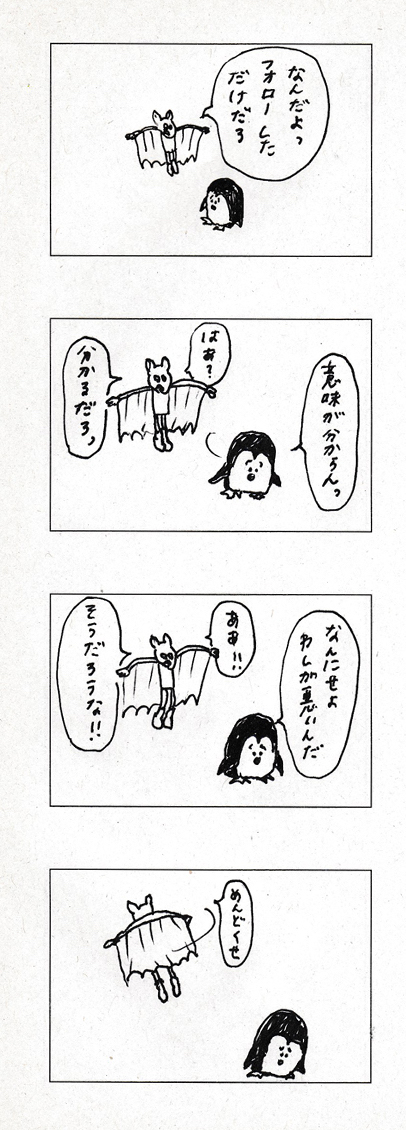 なんだよっ
フォローした
だけだろ
意味が分からんっ
はあ?
分かるだろ、
なんにせよ
わしが悪いんだ
ああ!!
そうだろうな!!
めんどくせ